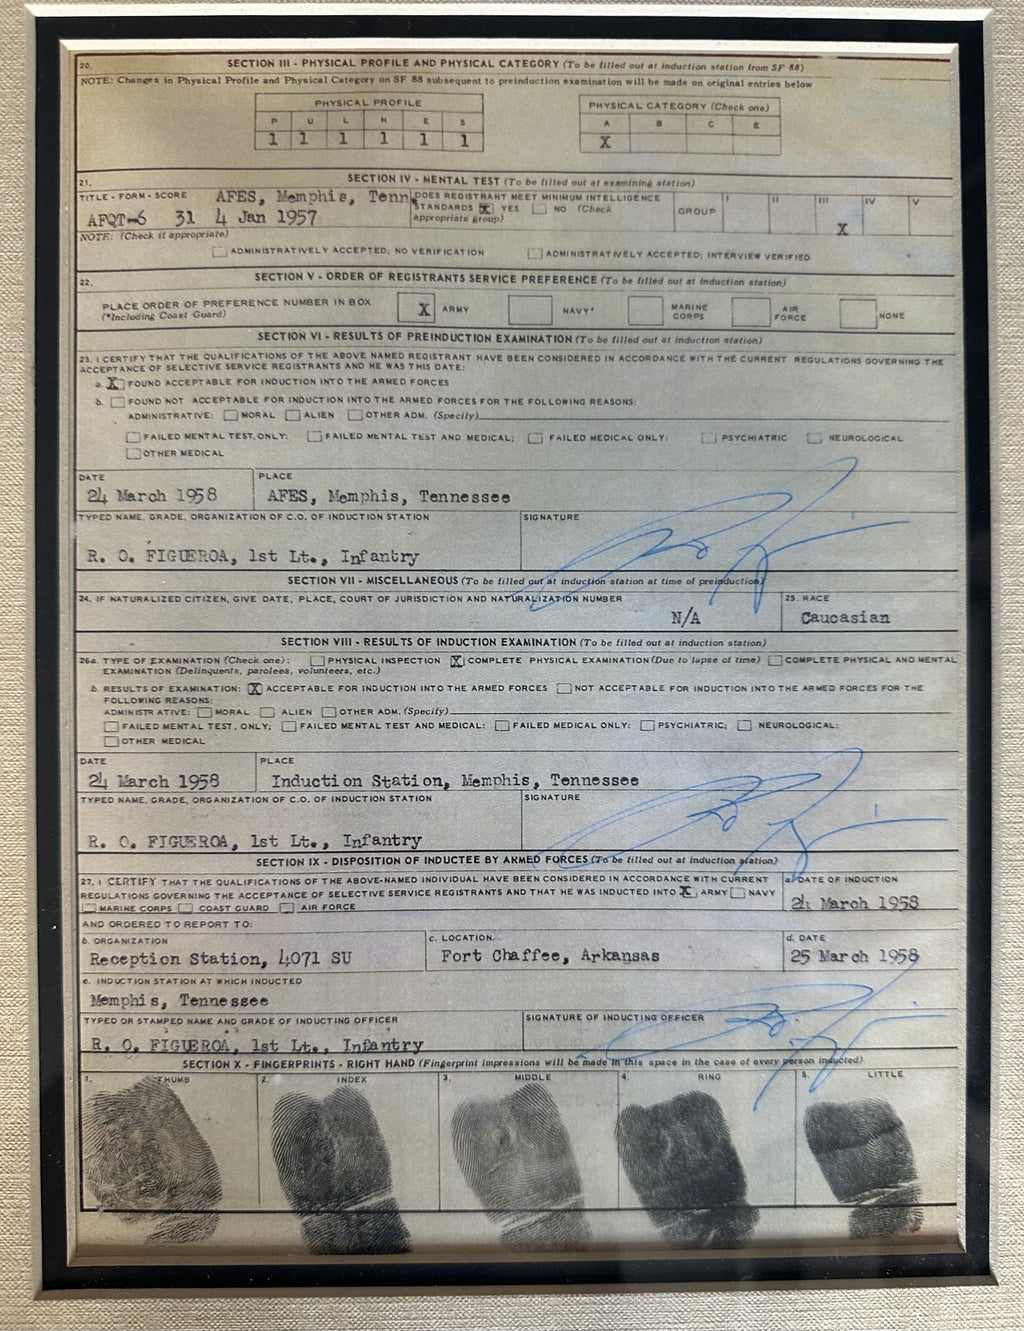 20. SECTION III - PHYSICAL PROFILE AND PHYSICAL CATEGORY (To be filled out at induction station from SF 88)
NOTE: Changes in Physical Profile and Physical Category on SF 88 subsequent to preinduction examination will be made on original entries below
PHYSICAL PROFILE
P U L H E S
1 1 1 1 1 1
PHYSICAL CATEGORY (Check one)
A B C E
X
21. SECTION IV - MENTAL TEST (To be filled out at examining station)
TITLE - FORM - SCORE AFES, Memphis, Tenn
AFQT-6 31 4 Jan 1957
DOES REGISTRANT MEET MINIMUM INTELLIGENCE
STANDARDS X YES NO (Check
appropriate group)
GROUP I II III IV V
X
NOTE: (Check if appropriate)
ADMINISTRATIVELY ACCEPTED; NO VERIFICATION ADMINISTRATIVELY ACCEPTED; INTERVIEW VERIFIED
22. SECTION V - ORDER OF REGISTRANTS SERVICE PREFERENCE (To be filled out at induction station)
PLACE ORDER OF PREFERENCE NUMBER IN BOX
(*Including Coast Guard)
X ARMY NAVY* MARINE CORPS AIR FORCE NONE
SECTION VI - RESULTS OF PREINDUCTION EXAMINATION (To be filled out at induction station)
23. I CERTIFY THAT THE QUALIFICATIONS OF THE ABOVE NAMED REGISTRANT HAVE BEEN CONSIDERED IN ACCORDANCE WITH THE CURRENT REGULATIONS GOVERNING THE
ACCEPTANCE OF SELECTIVE SERVICE REGISTRANTS AND HE WAS THIS DATE:
a. X FOUND ACCEPTABLE FOR INDUCTION INTO THE ARMED FORCES
b. FOUND NOT ACCEPTABLE FOR INDUCTION INTO THE ARMED FORCES FOR THE FOLLOWING REASONS:
ADMINISTRATIVE: MORAL ALIEN OTHER ADM. (Specify)
FAILED MENTAL TEST ONLY: FAILED MENTAL TEST AND MEDICAL; FAILED MEDICAL ONLY: PSYCHIATRIC NEUROLOGICAL
OTHER MEDICAL
DATE PLACE
24 March 1958 AFES, Memphis, Tennessee
TYPED NAME, GRADE, ORGANIZATION OF C.O. OF INDUCTION STATION SIGNATURE
R. O. FIGUEROA, 1st Lt., Infantry
SECTION VII - MISCELLANEOUS (To be filled out at induction station at time of preinduction)
24. IF NATURALIZED CITIZEN, GIVE DATE, PLACE, COURT OF JURISDICTION AND NATURALIZATION NUMBER 25. RACE
N/A Caucasian
SECTION VIII - RESULTS OF INDUCTION EXAMINATION (To be filled out at induction station)
26a. TYPE OF EXAMINATION (Check one): PHYSICAL INSPECTION X COMPLETE PHYSICAL EXAMINATION (Due to lapse of time) COMPLETE PHYSICAL AND MENTAL
EXAMINATION (Delinquents, parolees, volunteers, etc.)
b. RESULTS OF EXAMINATION: X ACCEPTABLE FOR INDUCTION INTO THE ARMED FORCES NOT ACCEPTABLE FOR INDUCTION INTO THE ARMED FORCES FOR THE
FOLLOWING REASONS:
ADMINISTRATIVE: MORAL ALIEN OTHER ADM. (Specify)
FAILED MENTAL TEST, ONLY; FAILED MENTAL TEST AND MEDICAL: FAILED MEDICAL ONLY: PSYCHIATRIC; NEUROLOGICAL:
OTHER MEDICAL
DATE PLACE
24 March 1958 Induction Station, Memphis, Tennessee
TYPED NAME, GRADE, ORGANIZATION OF C.O. OF INDUCTION STATION SIGNATURE
R. O. FIGUEROA, 1st Lt., Infantry
SECTION IX - DISPOSITION OF INDUCTEE BY ARMED FORCES (To be filled out at induction station)
27. I CERTIFY THAT THE QUALIFICATIONS OF THE ABOVE-NAMED INDIVIDUAL HAVE BEEN CONSIDERED IN ACCORDANCE WITH CURRENT
REGULATIONS GOVERNING THE ACCEPTANCE OF SELECTIVE SERVICE REGISTRANTS AND THAT HE WAS INDUCTED INTO X ARMY NAVY
MARINE CORPS COAST GUARD AIR FORCE
a. DATE OF INDUCTION
24 March 1958
AND ORDERED TO REPORT TO:
b. ORGANIZATION c. LOCATION d. DATE
Reception Station, 4071 SU Fort Chaffee, Arkansas 25 March 1958
e. INDUCTION STATION AT WHICH INDUCTED
Memphis, Tennessee
TYPED OR STAMPED NAME AND GRADE OF INDUCTING OFFICER SIGNATURE OF INDUCTING OFFICER
R. O. FIGUEROA, 1st Lt., Infantry
SECTION X - FINGERPRINTS - RIGHT HAND (Fingerprint impressions will be made in this space in the case of every person inducted)
1. THUMB 2. INDEX 3. MIDDLE 4. RING 5. LITTLE